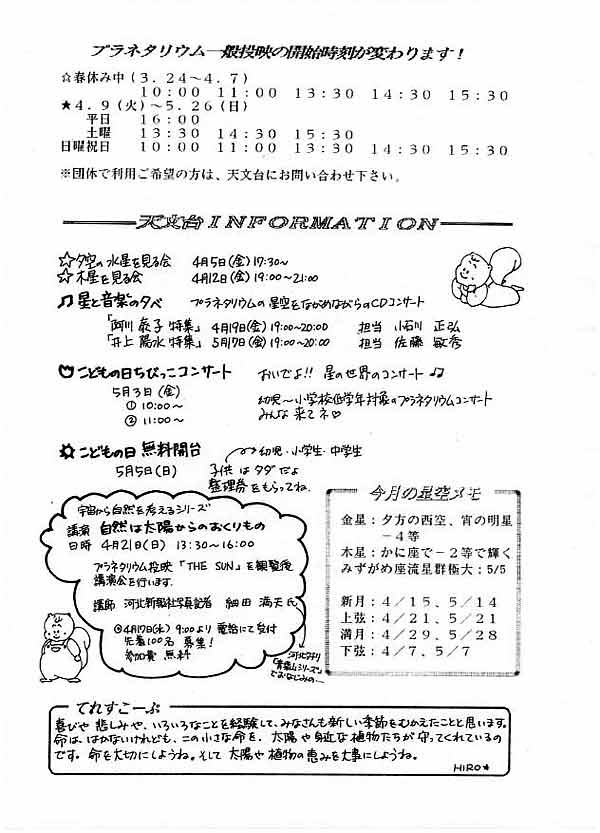 プラネタリウム一般投映の開始時刻が変わります！
☆春休み中（３．２４～４．７）
１０：００ １１：００ １３：３０ １４：３０ １５：３０
★４．９（火）～５．２６（日）
平日 １６：００
土曜 １３：３０ １４：３０ １５：３０
日曜祝日 １０：００ １１：００ １３：３０ １４：３０ １５：３０
※団体で利用ご希望の方は、天文台にお問い合わせ下さい。
天文台ＩＮＦＯＲＭＡＴＩＯＮ
☆夕空の水星を見る会 4月5日(金) 17:30～
☆木星を見る会 4月12日(金) 19:00～21:00
♫星と音楽の夕べ プラネタリウムの星空をながめながらのCDコンサート
「阿川 泰子 特集」 4月19日(金) 19:00～20:00 担当 小石川 正弘
「井上 陽水 特集」 5月17日(金) 19:00～20:00 担当 佐藤 敏秀
こどもの日ちびっこコンサート おいでよ!! 星の世界のコンサート ♫
5月3日(金)
① 10:00～ 幼児～小学校低学年対象のプラネタリウムコンサート
② 11:00～ みんな 来てネ♡
こどもの日 無料開台 幼児・小学生・中学生
5月5日(日) 子供はタダだよ
整理券をもらってね。
宇宙から自然を考えるシリーズ
講演 自然は太陽からのおくりもの
日時 4月21日(日) 13:30～16:00
プラネタリウム投映「THE SUN」を観覧後
講演会を行います。
講師 河北新報社写真記者 細田 満夫氏
◎4月17日(水) 9:00より 電話にて受付
先着100名 募集！
参加費 無料
河北夕刊
「青葉山シリーズ」
でおなじみの…
今月の星空メモ
金星：夕方の西空、宵の明星
－４等
木星：かに座で－２等で輝く
みずがめ座流星群極大：5/5
新月：４／１５、５／１４
上弦：４／２１、５／２１
満月：４／２９、５／２８
下弦：４／７、５／７
てれすこーぷ
喜びや 悲しみや、いろいろなことを経験して、みなさんも新しい季節をむかえたことと思います。
命は、はかないけれども、この小さな命を、太陽や身近な植物たちが守ってくれているの
です。命を大切にしようね。そして太陽や植物の恵みを大事にしようね。
HIRO★